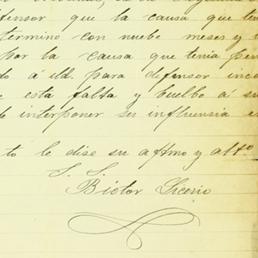 fensor que la causa que ten
termino con nuebe meses y
por la causa que tenia pen
do a ud. para defensor inco
e esta falta y buelbo a su
o interponer su influencia e
to le dise su afmo y atto
S. S.
Bictor Licerio